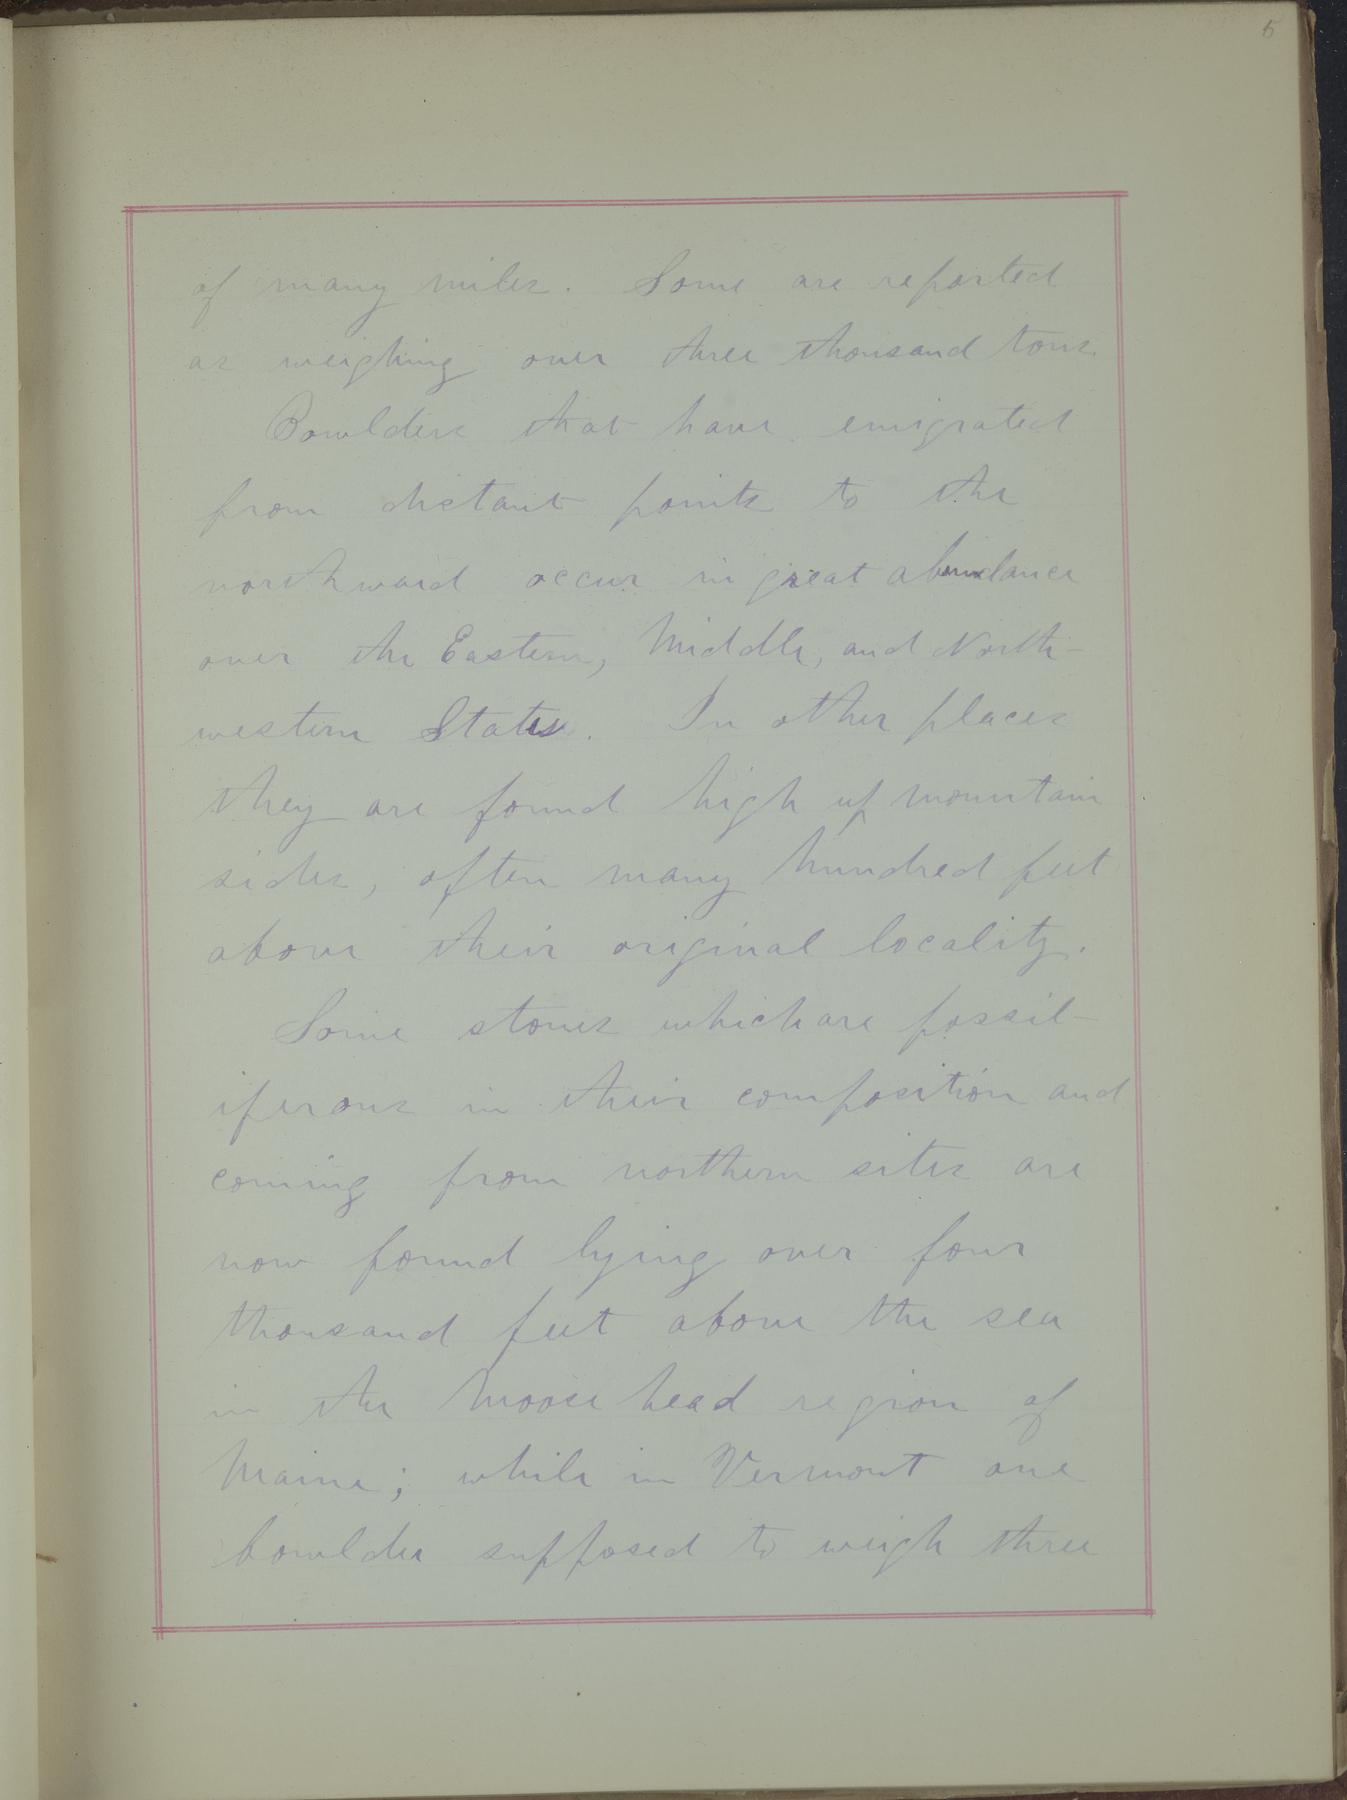 5
of many miles. Some are reported
as weighing over three thousand tons.
Bowlders that have emigrated
from distant points to the
northward occur in great abundance
over the Eastern, Middle, and North-
western States. In other places
they are found high up mountain
sides, often many hundred feet
above their original locality.
Some stones which are fossil-
iferous in their composition and
coming from northern sites are
now found lying over four
thousand feet above the sea
in the Moose head region of
Maine; while in Vermont one
bowlder supposed to weigh three